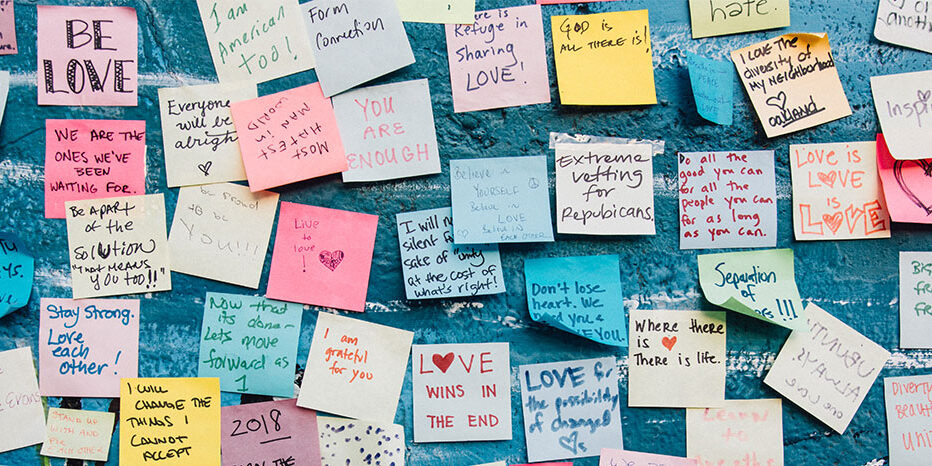 BE
LOVE
I am
American
too!
Form
Connection
there is
Refuge
in
Sharing
LOVE!
GOD is
ALL THERE is!
hate.
I LOVE the
diversity of
MY NEIGHBORHOOD
OAKLAND
another
Everyone
will be
alright
MOST
HATEST
MAN
YOU
ARE
ENOUGH
Inspi
WE ARE THE
ONES WE'VE
BEEN
WAITING FOR.
Believe
YOURSELF
Believe in
LOVE
Believe in
EACH OTHER
Extreme
vetting
for
Repubicans.
Do all the
good you can
for all the
people you can
for as long
as you can.
LOVE is
LOVE
is
LOVE
BE APART
of the
SOLUTION
"THAT MEANS
YOU TOO!!"
proud
to be
YOU!!!
Live
to
love!
I will
silent for
sake of "unity
at the cost of
what's right!
Don't lose
heart. We
need you &
LOVE YOU
Separation
of
Stay Strong.
Love
each
other!
Now that
its done-
lets move
forward as
1
I am
grateful
for you
LOVE
WINS IN
THE END
LOVE for
the possibility
of changed
Where there
is
There is life.
Diverty
Beautiful
I WILL
CHANGE THE
THINGS I
CANNOT
ACCEPT
STAND UP
WITH AND
FOR
EACH OTHER
2018